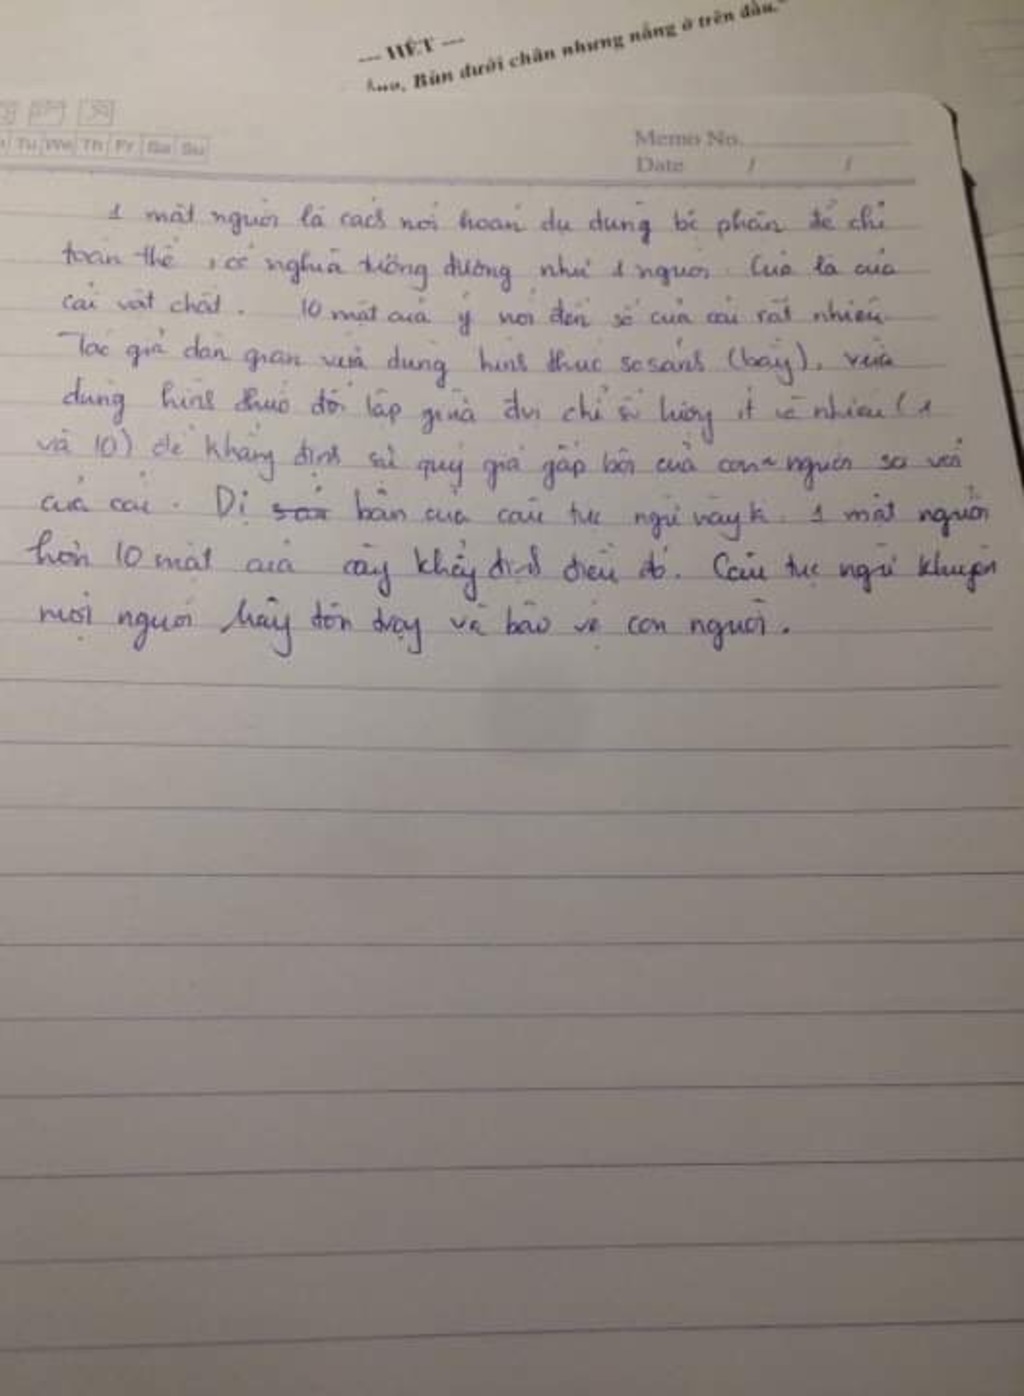 --- HẾT ---
Bùn dưới chân nhưng nắng ở trên đầu."
Tu We Th Fr Sa Su
Memo No.
Date / /
1 mặt người là cách nói hoán dụ dùng bộ phận để chỉ
toàn thể, có nghĩa tương đương như 1 người. Của là của
cải vật chất. 10 mặt của ý nói đến số của cải rất nhiều
Tác giả dân gian vừa dùng hình thức so sánh (bằng), vừa
dùng hình thức đối lập giữa đvị chỉ số lượng ít và nhiều (1
và 10) để khẳng định sự quý giá gấp bội của con người so với
của cải. Dị bản của câu tục ngữ này 1 mặt người
hơn 10 mặt của càng khẳng định điều đó. Câu tục ngữ khuyên
mọi người hãy tôn trọng và bảo vệ con người.